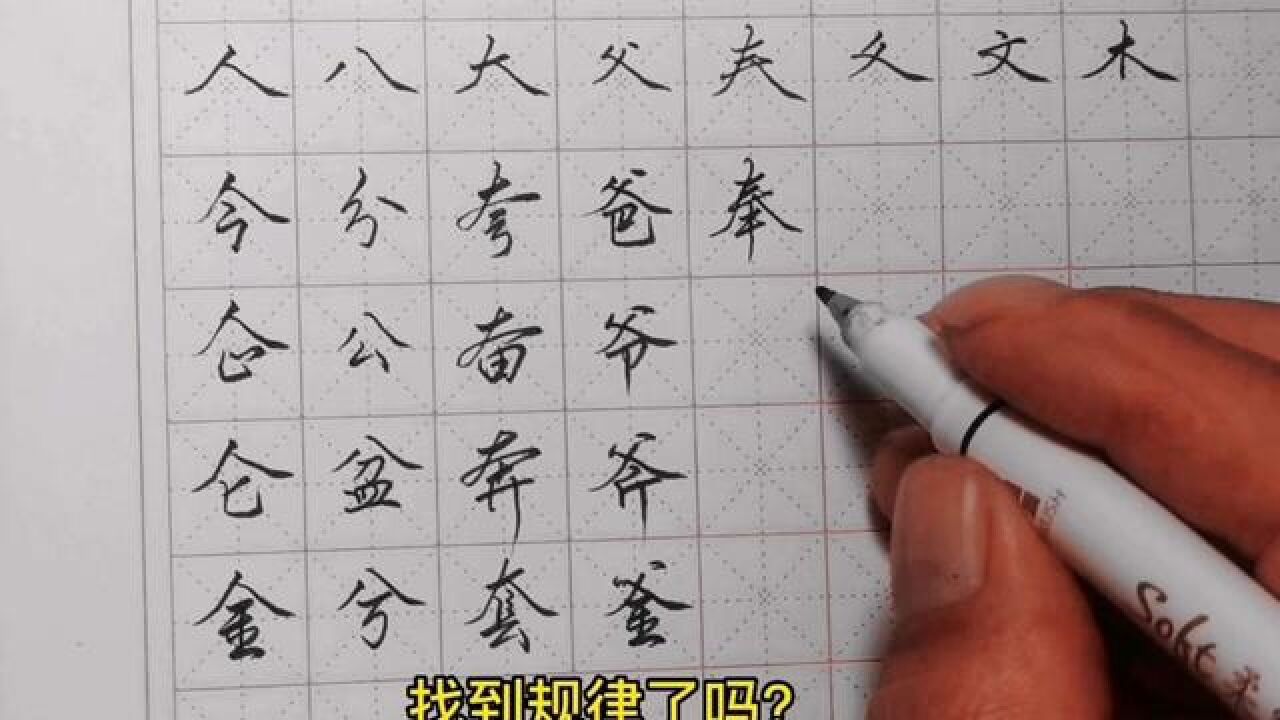 人 八 大 父 夫 攵 文 木
今 分 夸 爸 奉
企 公 奋 爷
仑 盆 奔 斧
金 兮 套 釜
Soft
找到规律了吗?